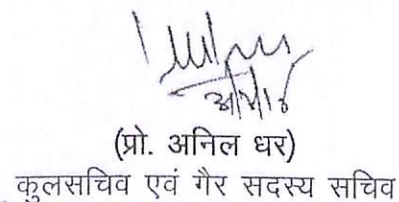 (प्रो. अनिल धर)
कुलसचिव एवं गैर सदस्य सचिव